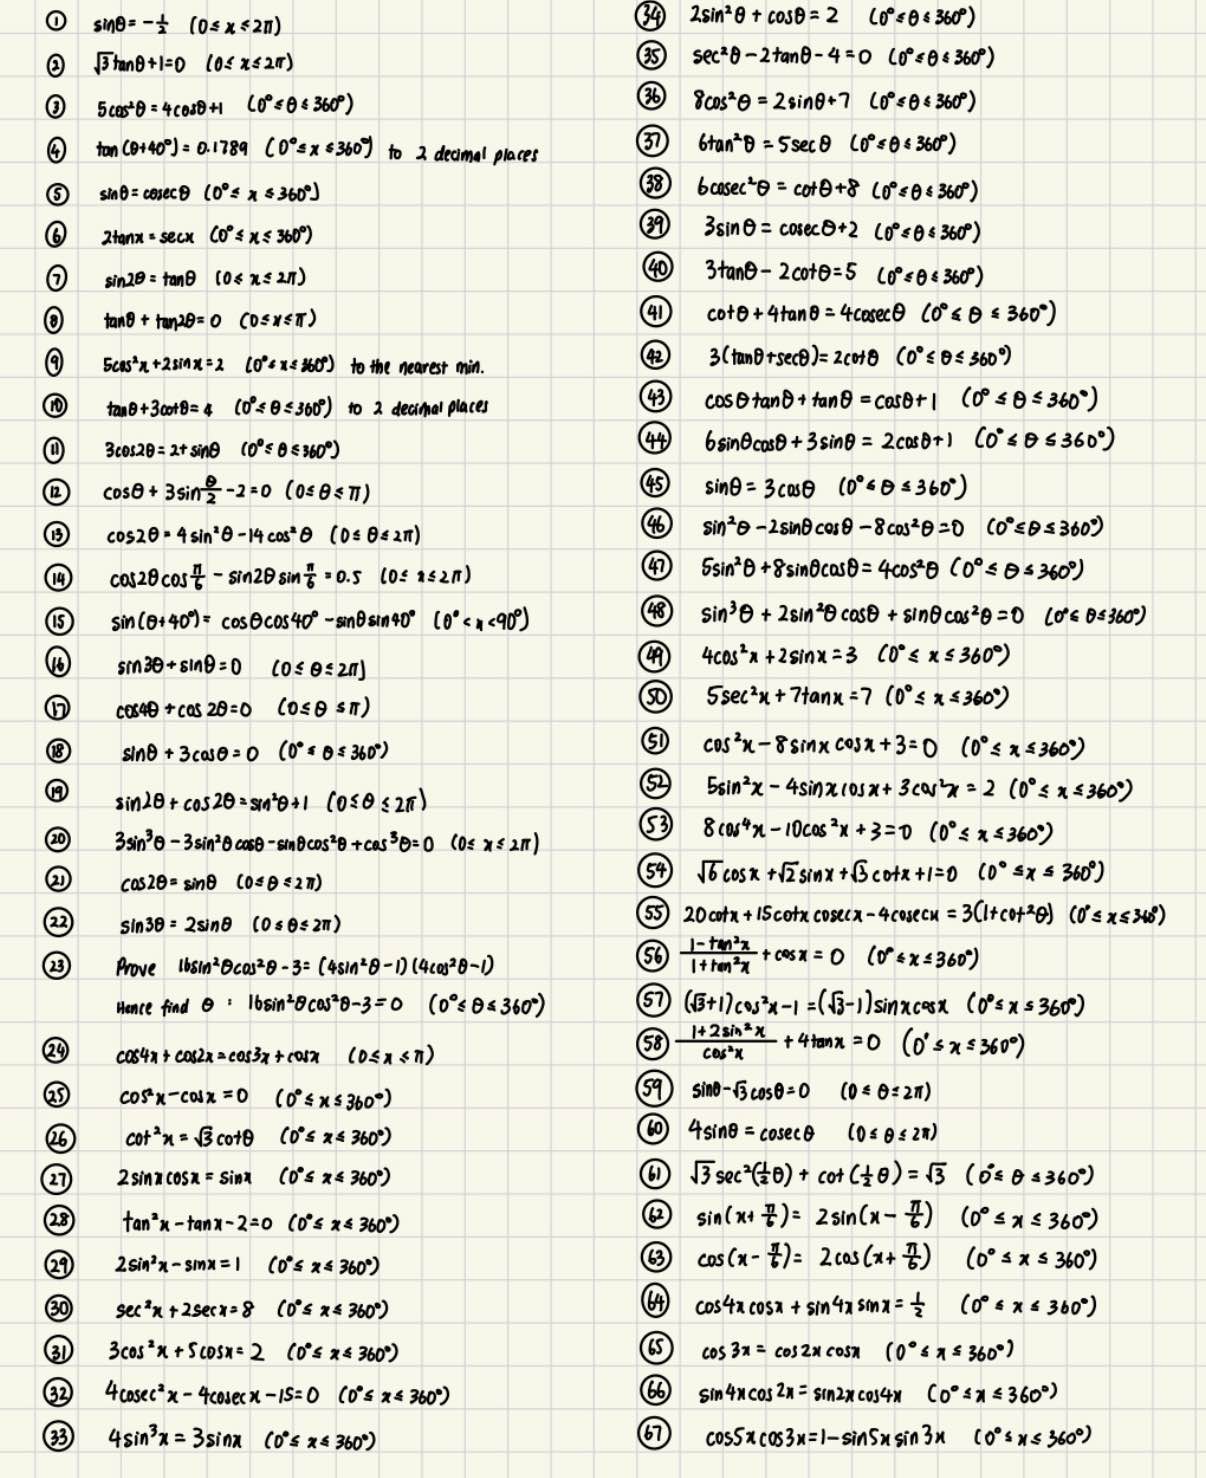 ① sinθ = -1/2 (0 ≤ x ≤ 2π)
② √3 tanθ + 1 = 0 (0 ≤ x ≤ 2π)
③ 5cos²θ = 4cosθ + 1 (0° ≤ θ ≤ 360°)
④ tan(θ+40°) = 0.1789 (0° ≤ x ≤ 360°) to 2 decimal places
⑤ sinθ = cosecθ (0° ≤ x ≤ 360°)
⑥ 2tanx = secx (0° ≤ x ≤ 360°)
⑦ sin2θ = tanθ (0 ≤ x ≤ 2π)
⑧ tanθ + tan2θ = 0 (0 ≤ x ≤ π)
⑨ 5cos²x + 2sinx = 2 (0° ≤ x ≤ 360°) to the nearest min.
⑩ tanθ + 3cotθ = 4 (0° ≤ θ ≤ 360°) to 2 decimal places
⑪ 3cos2θ = 2 + sinθ (0° ≤ θ ≤ 360°)
⑫ cosθ + 3sin θ/2 - 2 = 0 (0 ≤ θ ≤ π)
⑬ cos2θ = 4sin²θ - 14cos²θ (0 ≤ θ ≤ 2π)
⑭ cos2θcos π/6 - sin2θsin π/6 = 0.5 (0 ≤ x ≤ 2π)
⑮ sin(θ+40°) = cosθcos40° - sinθsin40° (0° < x < 90°)
⑯ sin3θ + sinθ = 0 (0 ≤ θ ≤ 2π)
⑰ cos4θ + cos2θ = 0 (0 ≤ θ ≤ π)
⑱ sinθ + 3cosθ = 0 (0° ≤ θ ≤ 360°)
⑲ sin2θ + cos2θ = sin²θ + 1 (0 ≤ θ ≤ 2π)
⑳ 3sin³θ - 3sin²θcosθ - sinθcos²θ + cos³θ = 0 (0 ≤ x ≤ 2π)
㉑ cos2θ = sinθ (0 ≤ θ ≤ 2π)
㉒ sin3θ = 2sinθ (0 ≤ θ ≤ 2π)
㉓ Prove 16sin²θcos²θ - 3 = (4sin²θ - 1)(4cos²θ - 1)
Hence find θ : 16sin²θcos²θ - 3 = 0 (0° ≤ θ ≤ 360°)
㉔ cos4x + cos2x = cos3x + cosx (0 ≤ x ≤ π)
㉕ cos²x - cosx = 0 (0° ≤ x ≤ 360°)
㉖ cot²x = √3 cotθ (0° ≤ x ≤ 360°)
㉗ 2sinxcosx = sinx (0° ≤ x ≤ 360°)
㉘ tan²x - tanx - 2 = 0 (0° ≤ x ≤ 360°)
㉙ 2sin²x - sinx = 1 (0° ≤ x ≤ 360°)
㉚ sec²x + 2secx = 8 (0° ≤ x ≤ 360°)
㉛ 3cos²x + 5cosx = 2 (0° ≤ x ≤ 360°)
㉜ 4cosec²x - 4cosecx - 15 = 0 (0° ≤ x ≤ 360°)
㉝ 4sin³x = 3sinx (0° ≤ x ≤ 360°)
㉞ 2sin²θ + cosθ = 2 (0° ≤ θ ≤ 360°)
㉟ sec²θ - 2tanθ - 4 = 0 (0° ≤ θ ≤ 360°)
㊱ 8cos²θ = 2sinθ + 7 (0° ≤ θ ≤ 360°)
㊲ 6tan²θ = 5secθ (0° ≤ θ ≤ 360°)
㊳ 6cosec²θ = cotθ + 8 (0° ≤ θ ≤ 360°)
㊴ 3sinθ = cosecθ + 2 (0° ≤ θ ≤ 360°)
㊵ 3tanθ - 2cotθ = 5 (0° ≤ θ ≤ 360°)
㊶ cotθ + 4tanθ = 4cosecθ (0° ≤ θ ≤ 360°)
㊷ 3(tanθ + secθ) = 2cotθ (0° ≤ θ ≤ 360°)
㊸ cosθtanθ + tanθ = cosθ + 1 (0° ≤ θ ≤ 360°)
㊹ 6sinθcosθ + 3sinθ = 2cosθ + 1 (0° ≤ θ ≤ 360°)
㊺ sinθ = 3cosθ (0° ≤ θ ≤ 360°)
㊻ sin²θ - 2sinθcosθ - 8cos²θ = 0 (0° ≤ θ ≤ 360°)
㊼ 5sin²θ + 8sinθcosθ = 4cos²θ (0° ≤ θ ≤ 360°)
㊽ sin³θ + 2sin²θcosθ + sinθcos²θ = 0 (0° ≤ θ ≤ 360°)
㊾ 4cos²x + 2sinx = 3 (0° ≤ x ≤ 360°)
㊿ 5sec²x + 7tanx = 7 (0° ≤ x ≤ 360°)
51 cos²x - 8sinxcosx + 3 = 0 (0° ≤ x ≤ 360°)
52 5sin²x - 4sinxcosx + 3cos²x = 2 (0° ≤ x ≤ 360°)
53 8cos⁴x - 10cos²x + 3 = 0 (0° ≤ x ≤ 360°)
54 √6 cosx + √2 sinx + √3 cotx + 1 = 0 (0° ≤ x ≤ 360°)
55 20cotx + 15cotxcosecx - 4cosecx = 3(1 + cot²θ) (0° ≤ x ≤ 360°)
56 (1 - tan²x)/(1 + tan²x) + cosx = 0 (0° ≤ x ≤ 360°)
57 (√3+1)cos²x - 1 = (√3-1)sinxcosx (0° ≤ x ≤ 360°)
58 (1 + 2sin²x)/cos²x + 4tanx = 0 (0° ≤ x ≤ 360°)
59 sinθ - √3 cosθ = 0 (0 ≤ θ ≤ 2π)
60 4sinθ = cosecθ (0 ≤ θ ≤ 2π)
61 √3 sec²(1/2 θ) + cot(1/2 θ) = √3 (0° ≤ θ ≤ 360°)
62 sin(x + π/6) = 2sin(x - π/6) (0° ≤ x ≤ 360°)
63 cos(x - π/6) = 2cos(x + π/6) (0° ≤ x ≤ 360°)
64 cos4xcosx + sin4xsinx = 1/2 (0° ≤ x ≤ 360°)
65 cos3x = cos2xcosx (0° ≤ x ≤ 360°)
66 sin4xcos2x = sin2xcos4x (0° ≤ x ≤ 360°)
67 cos5xcos3x = 1 - sin5xsin3x (0° ≤ x ≤ 360°)